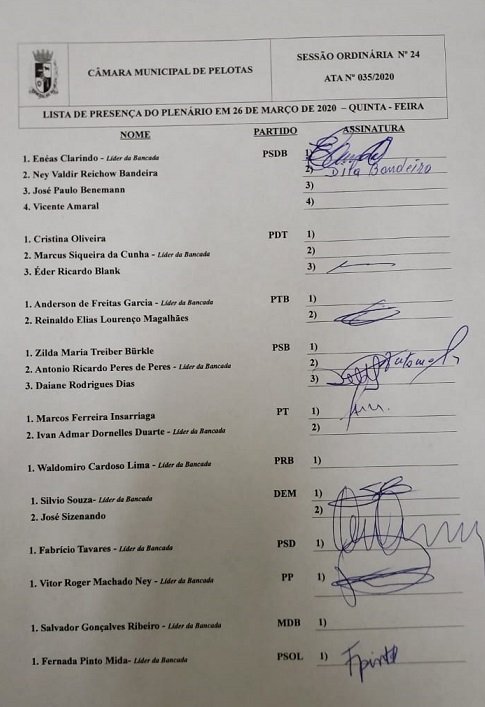 CÂMARA MUNICIPAL DE PELOTAS
SESSÃO ORDINÁRIA Nº 24
ATA Nº 035/2020
LISTA DE PRESENÇA DO PLENÁRIO EM 26 DE MARÇO DE 2020 – QUINTA - FEIRA
NOME PARTIDO ASSINATURA
1. Enéas Clarindo - Líder da Bancada PSDB 1)
2. Ney Valdir Reichow Bandeira 2) Dila Bandeira
3. José Paulo Benemann 3)
4. Vicente Amaral 4)
1. Cristina Oliveira PDT 1)
2. Marcus Siqueira da Cunha - Líder da Bancada 2)
3. Éder Ricardo Blank 3)
1. Anderson de Freitas Garcia - Líder da Bancada PTB 1)
2. Reinaldo Elias Lourenço Magalhães 2)
1. Zilda Maria Treiber Bürkle PSB 1)
2. Antonio Ricardo Peres de Peres - Líder da Bancada 2)
3. Daiane Rodrigues Dias 3)
1. Marcos Ferreira Insarriaga PT 1)
2. Ivan Admar Dornelles Duarte - Líder da Bancada 2)
1. Waldomiro Cardoso Lima - Líder da Bancada PRB 1)
1. Silvio Souza- Líder da Bancada DEM 1)
2. José Sizenando 2)
1. Fabrício Tavares - Líder da Bancada PSD 1)
1. Vitor Roger Machado Ney - Líder da Bancada PP 1)
1. Salvador Gonçalves Ribeiro - Líder da Bancada MDB 1)
1. Fernada Pinto Mida- Líder da Bancada PSOL 1) Fpinto